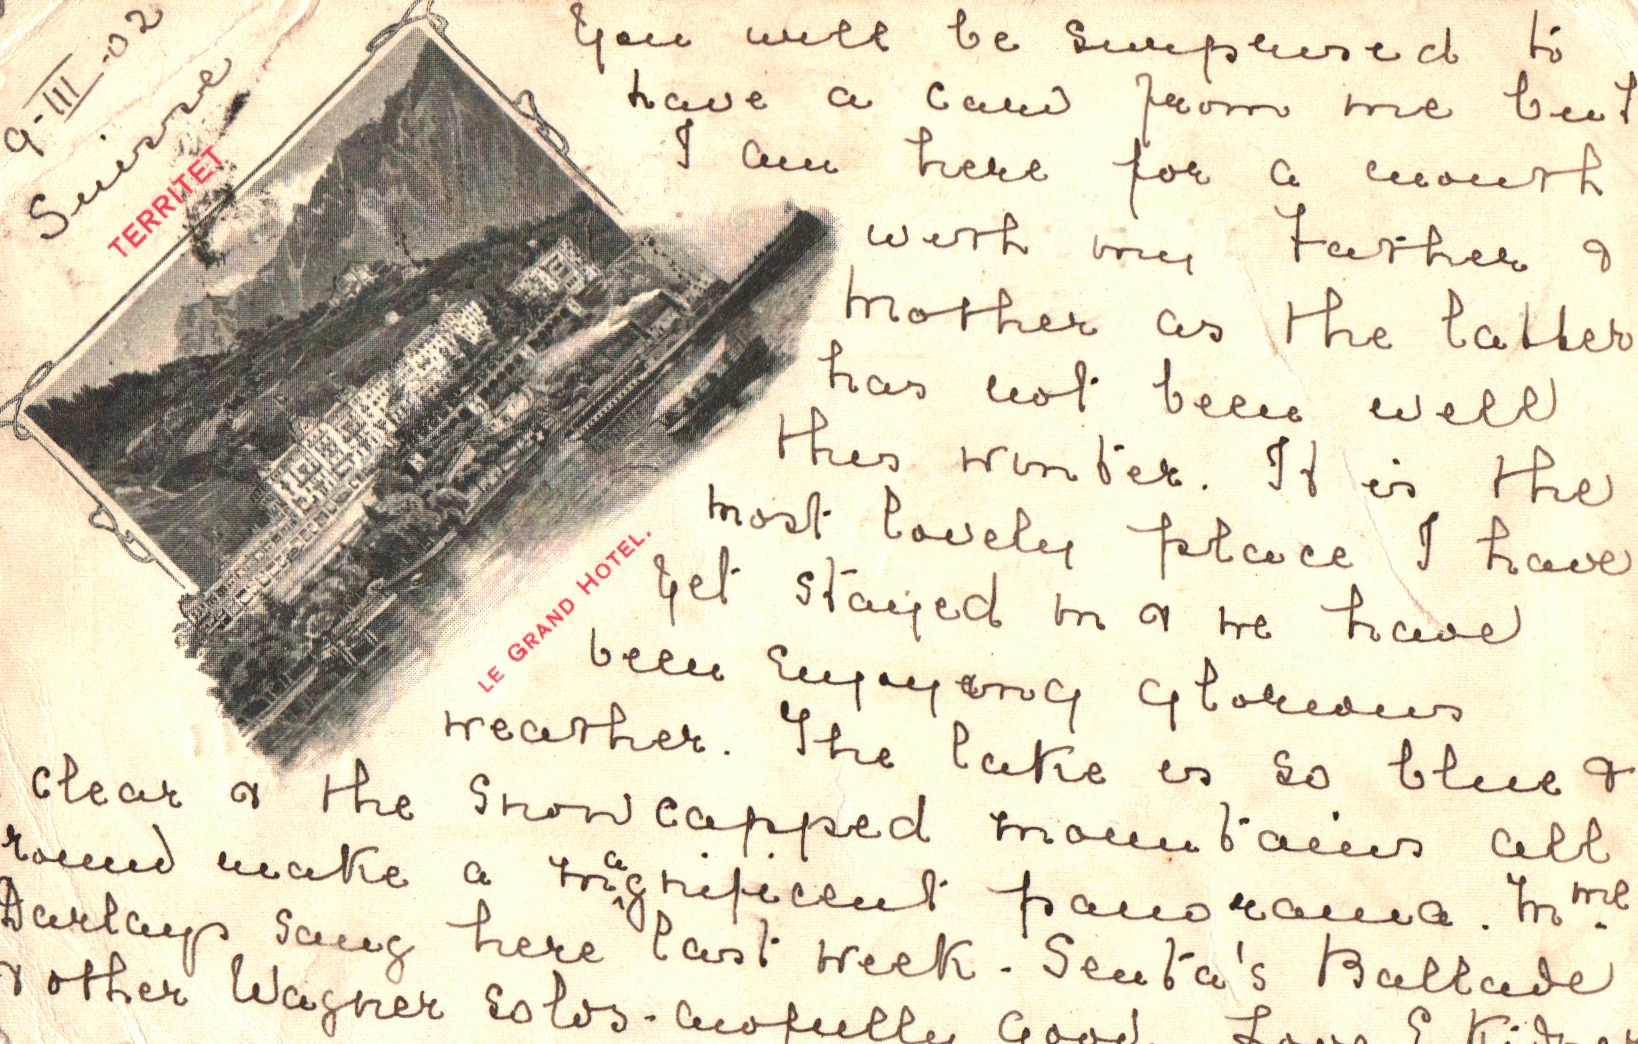 9-III-02
Suisse
TERRITET
LE GRAND HOTEL.
You will be surprised to
have a card from me but
I am here for a month
with my Father &
Mother as the latter
has not been well
this winter. It is the
most lovely place I have
yet stayed in & we have
been enjoying glorious
weather. The lake is so blue &
clear & the snow capped mountains all
round make a magnificent panorama. Mme.
sang here last week - Senta's Ballade
& other Wagner solos - awfully good. Love E